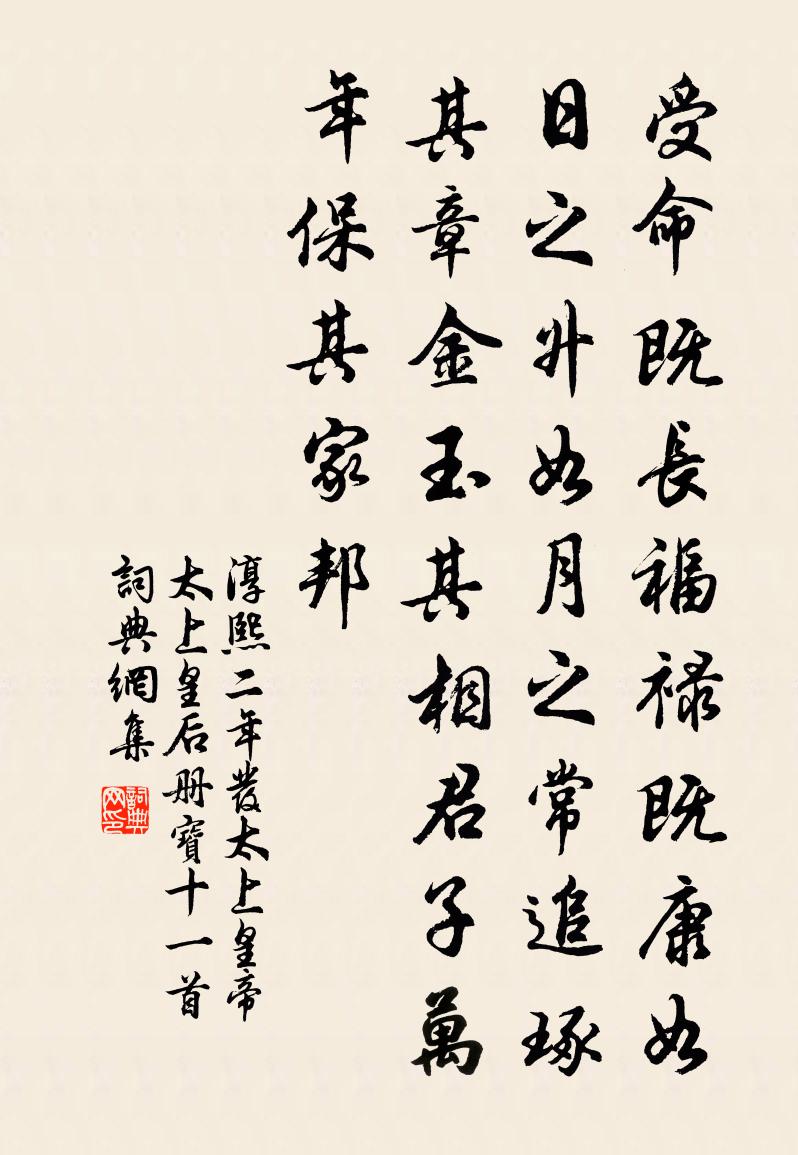 受命既長福禄既康如
日之升如月之常追琢
其章金玉其相君子萬
年保其家邦
淳熙二年發太上皇帝
太上皇后册寶十一首
詞典網集
詞典
网印